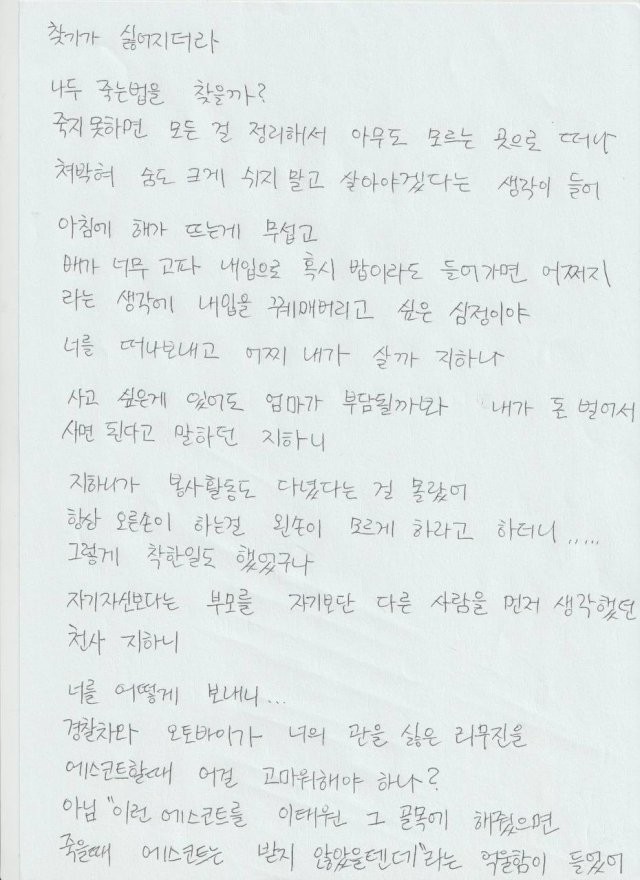 찾기가 싫어지더라
나두 죽는법을 찾을까?
죽지못하면 모든 걸 정리해서 아무도 모르는 곳으로 떠나
쳐박혀 숨도 크게 쉬지 말고 살아야겠다는 생각이 들어
아침에 해가 뜨는게 무섭고
배가 너무 고파 내입으로 혹시 밥이라도 들어가면 어쩌지
라는 생각에 내입을 꿰매버리고 싶은 심정이야
너를 떠나보내고 어찌 내가 살까 지하니
사고 싶은게 있어도 엄마가 부담될까봐 내가 돈 벌어서
사면 된다고 말하던 지하니
지하니가 봉사활동도 다녔다는 걸 몰랐어
항상 오른손이 하는걸 왼손이 모르게 하라고 하더니.....
그렇게 착한일도 했었구나
자기자신보다는 부모를 자기보단 다른 사람을 먼저 생각했던
천사 지하니
너를 어떻게 보내니...
경찰차와 오토바이가 너의 관을 실은 리무진을
에스코트할때 어걸 고마워해야 하나?
아님 "이런 에스코트를 이태원 그 골목에 해줬으면
죽을때 에스코트는 받지 않았을텐데"라는 억울함이 들었어